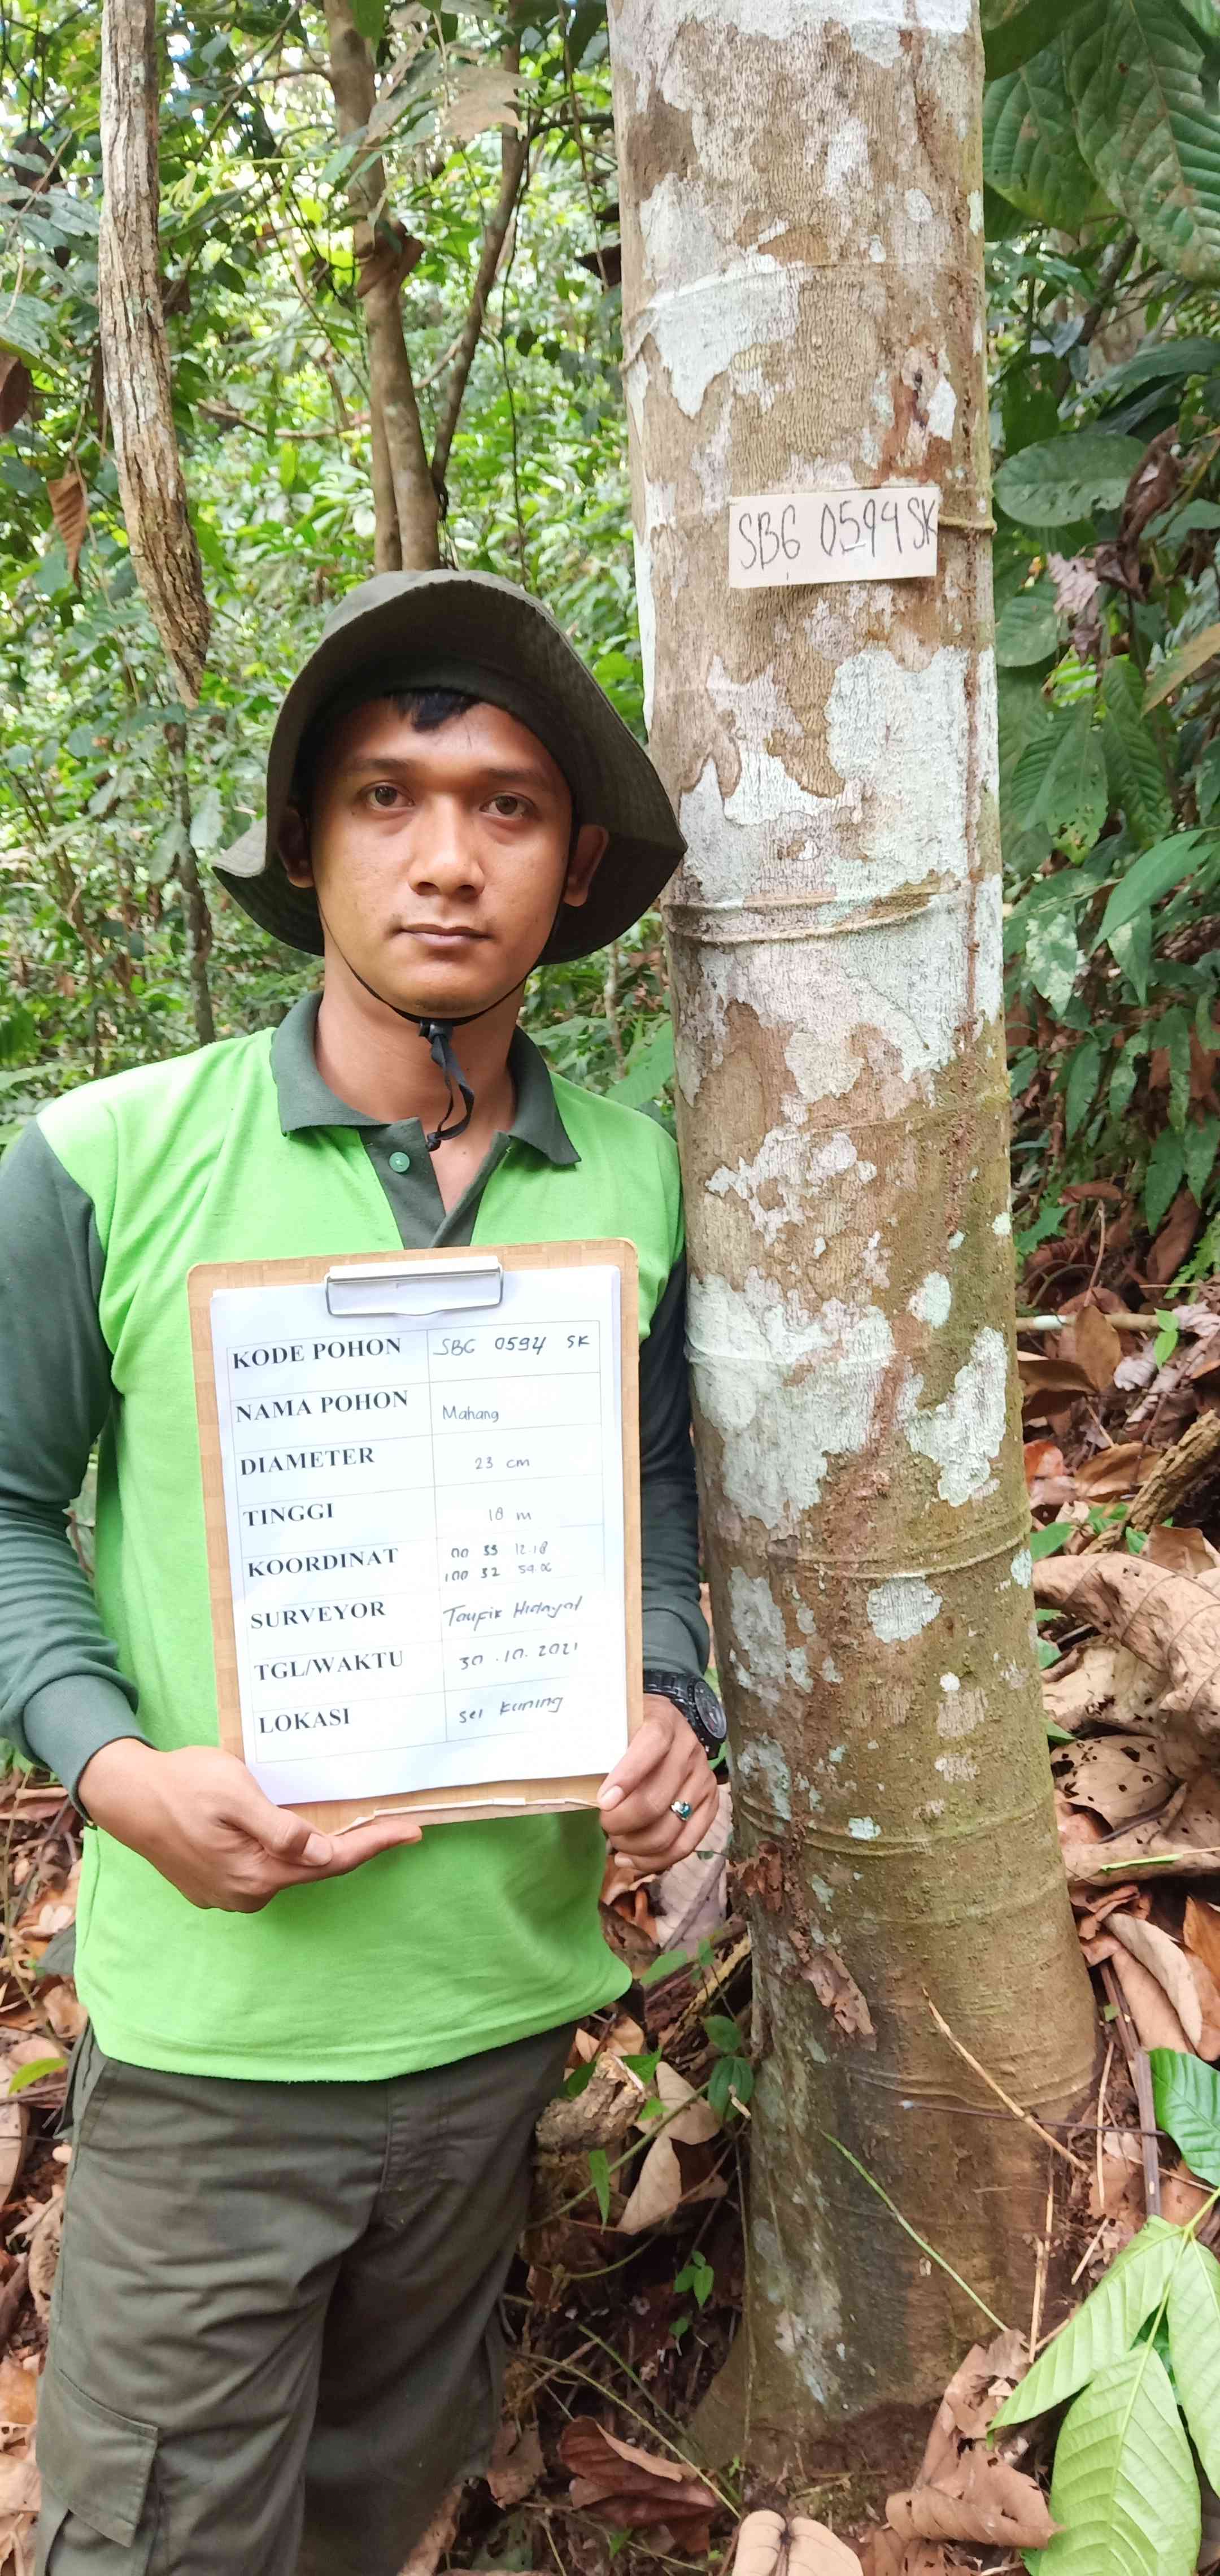 SBG 0594 SK
KODE POHON SBG 0594 SK
NAMA POHON Mahang
DIAMETER 23 cm
TINGGI 18 m
KOORDINAT 00 33 12.18
100 32 54.06
SURVEYOR Taufik Hidayat
TGL/WAKTU 30.10.2021
LOKASI sei Kuning